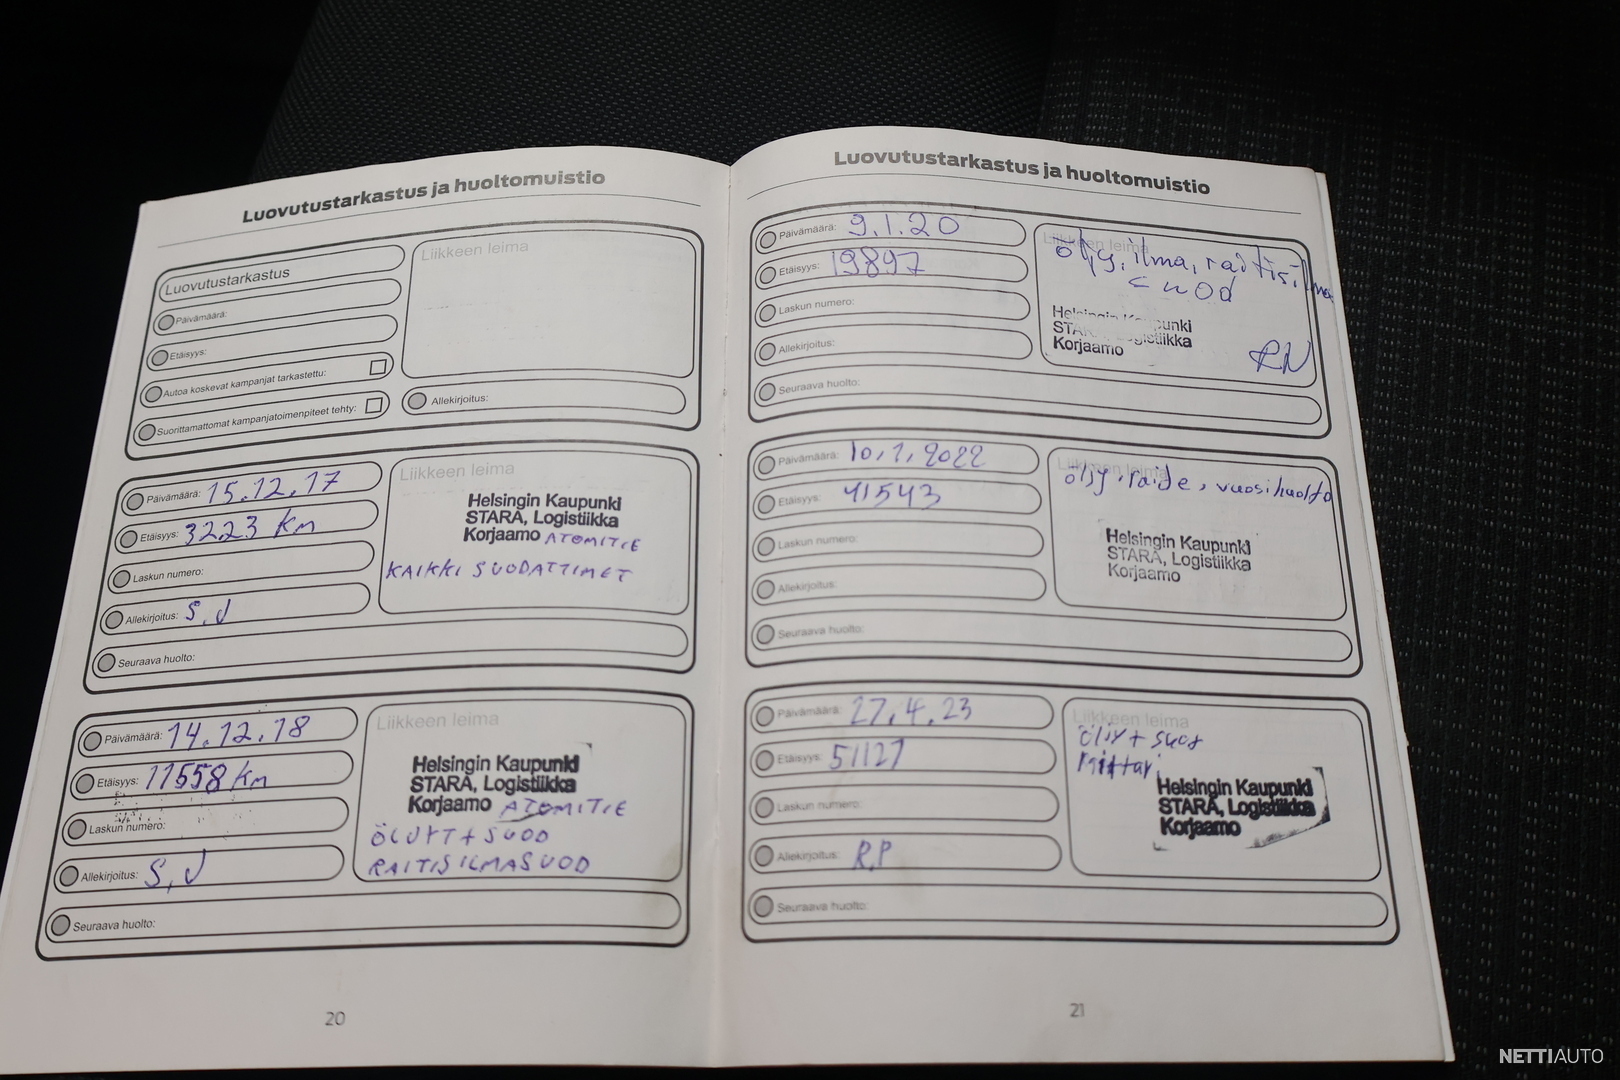 Luovutustarkastus ja huoltomuistio
Luovutustarkastus
Päivämäärä:
Etäisyys:
Autoa koskevat kampanjat tarkastettu:
Suorittamattomat kampanjatoimenpiteet tehty:
Liikkeen leima
Allekirjoitus:
Päivämäärä: 15.12.17
Etäisyys: 3223 km
Laskun numero:
Allekirjoitus: S.J
Seuraava huolto:
Liikkeen leima
Helsingin Kaupunki
STARA, Logistiikka
Korjaamo ATOMITIE
KAIKKI SUODATTIMET
Päivämäärä: 14.12.18
Etäisyys: 11558 km
Laskun numero:
Allekirjoitus: S,J
Seuraava huolto:
Liikkeen leima
Helsingin Kaupunki
STARA, Logistiikka
Korjaamo ATOMITIE
ÖLJYT + SUOD
RAITISILMASUOD
20
Luovutustarkastus ja huoltomuistio
Päivämäärä: 9.1.20
Etäisyys: 19897
Laskun numero:
Allekirjoitus:
Seuraava huolto:
Liikkeen leima
öljy, ilma, raitisilma
suod
Helsingin Kaupunki
STARA, Logistiikka
Korjaamo
RN
Päivämäärä: 10.1.2022
Etäisyys: 41543
Laskun numero:
Allekirjoitus:
Seuraava huolto:
Liikkeen leima
öljy, raide, vuosihuolto
Helsingin Kaupunki
STARA, Logistiikka
Korjaamo
Päivämäärä: 27.4.23
Etäisyys: 51127
Laskun numero:
Allekirjoitus: R.P
Seuraava huolto:
Liikkeen leima
öljy + suod
Mittari
Helsingin Kaupunki
STARA, Logistiikka
Korjaamo
21
NETTIAUTO